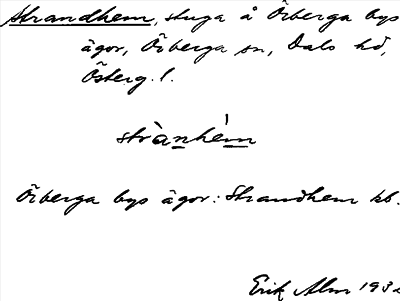 Strandhem, stuga å Örberga bys
ägor, Örberga sn, Dals hd,
Österg. l.
strànhém
Örberga bys ägor: Strandhem kb.
Erik Alm 193